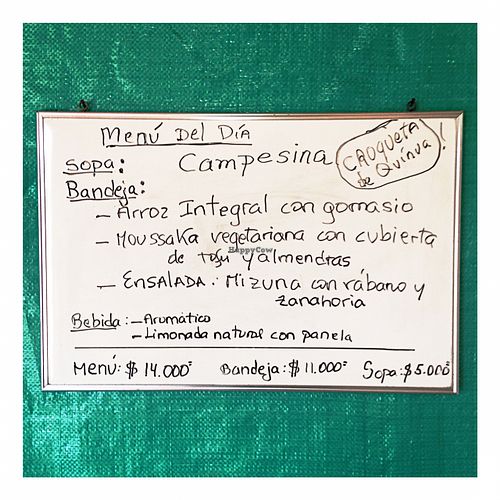 Menú Del Día
Sopa: Campesina
CROQUETA
de Quínua!
Bandeja:
- Arroz Integral con gomasio
- Moussaka vegetariana con cubierta
de tofu y almendras
- ENSALADA: Mizuna con rábano y
zanahoria
Bebida: - Aromático
- Limonada natural con panela
Menú: $ 14.000= Bandeja: $ 11.000= Sopa: $ 5.000=
HappyCow